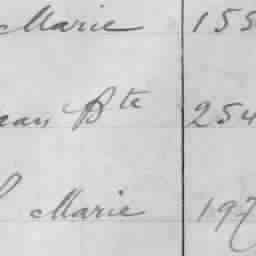 Marie 155
ean Bte 254
l Marie 197